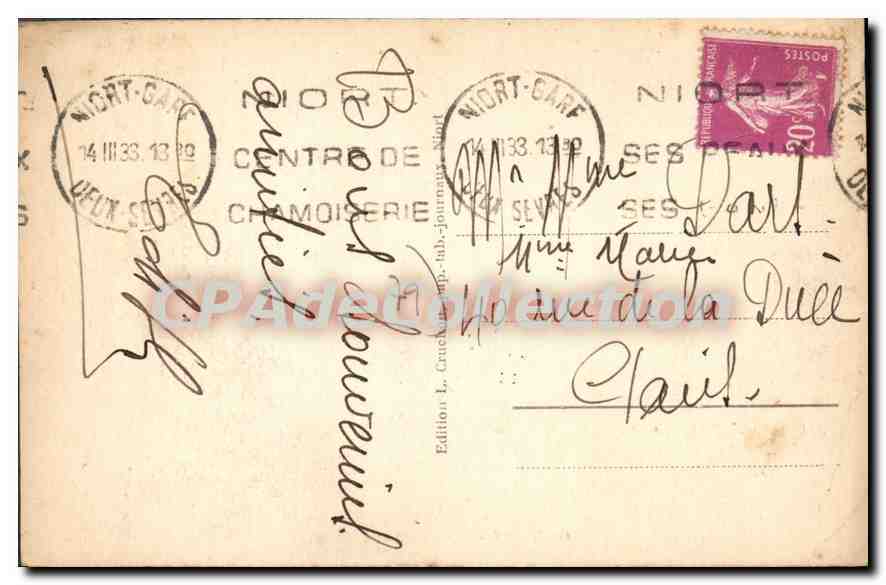 NIORT-GARE
14 III 33. 13 30
DEUX-SEVRES
NIORT
CENTRE DE
CHAMOISERIE
NIORT-GARE
14 III 33. 13 30
DEUX-SEVRES
NIORT
SES PEAUX
SES
REPUBLIQUE FRANÇAISE
POSTES
20c
Bons Souvenirs
amitiés
79
Edition L. Cruchon, imp.-lab.-journaux Niort
Mr Mme Dart
Mme
40 rue de la
Paris.
CPAdeCollection